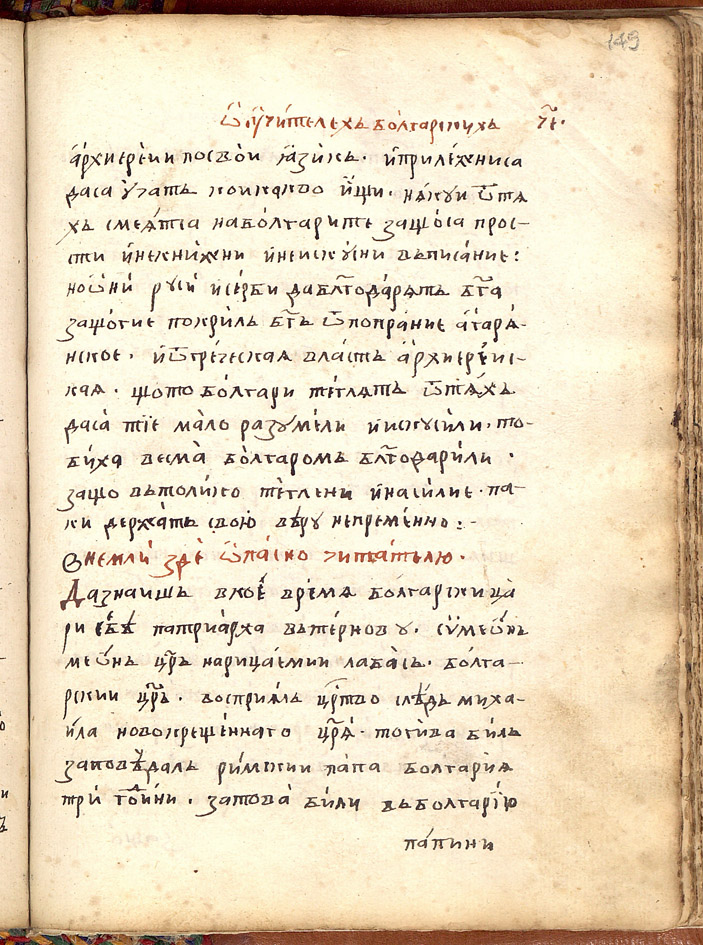 149
Ѡ оучителехь болгарскихь че·
архиереии посвои язикь · и прилежниса
даса учать коикакво ищи · някуи ѿ тя
хь смеятса наболгарите защоса прос-
сти и некнижни и неискусни вьписание:
но ѡни руси и серби да блгодарять бга
защогие покриль бгь ѿ попрание агаря-
нское · и ѿ греческая власть архиереис-
кая · щото болгари теглять ѿ тяхь
даса тїе мало разумели и искусили · то-
биха весма болгаромь блгодарили ·
защо вьтолико теглени и насилие · па-
ки держать свою вѣру непременно :-
Внемли здѣ ѡпасно читателю ·
Да знаишь вкое время болгарски ца
ри е бѣ патриарха вьтернову · сѵмеѡнь
меѡнь црь нарицаемии лабась · болга-
рскии црь · восприяль црство слѣдь миха-
ила новокрещеннаго царя · тогива биль
заповѣдаль римскии папа болгария
три години · затова били вьболгарїю
папини